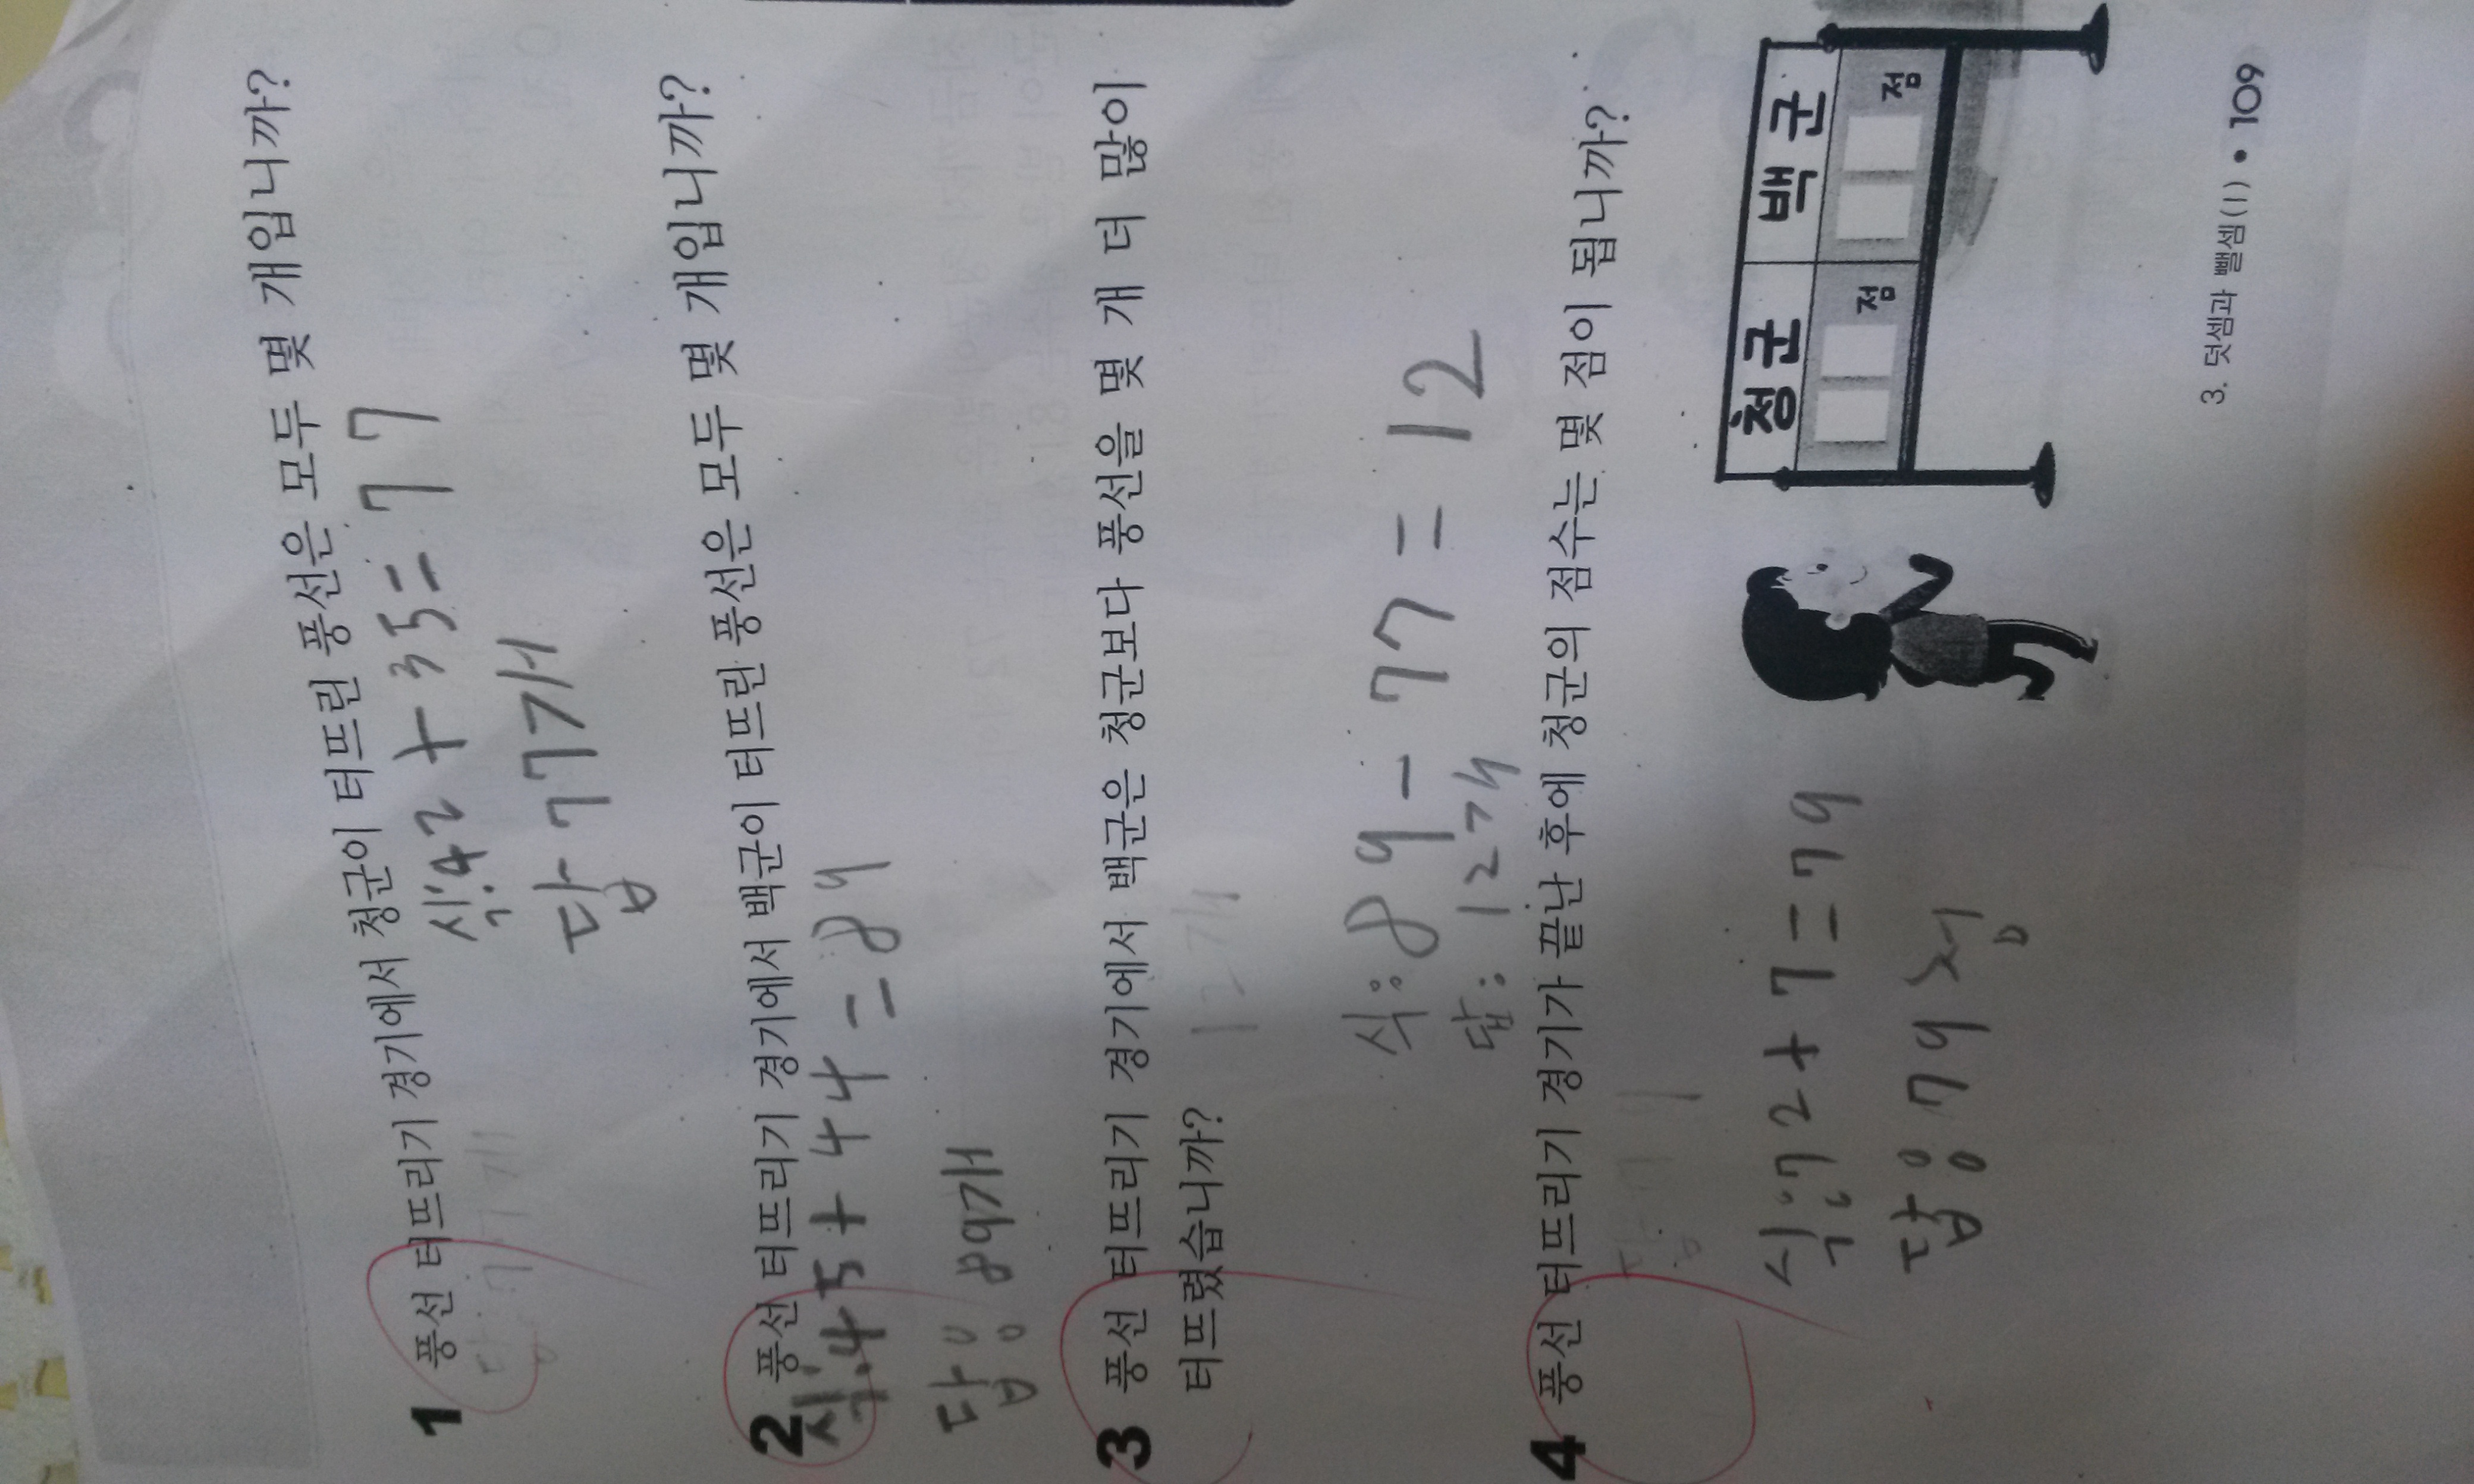 1 풍선 터뜨리기 경기에서 청군이 터뜨린 풍선은 모두 몇 개입니까?
식: 42 + 35 = 77
답 77개
2 풍선 터뜨리기 경기에서 백군이 터뜨린 풍선은 모두 몇 개입니까?
식: 45 + 44 = 89
답: 89개
3 풍선 터뜨리기 경기에서 백군은 청군보다 풍선을 몇 개 더 많이
터뜨렸습니까?
12개
식: 89 - 77 = 12
답: 12개
4 풍선 터뜨리기 경기가 끝난 후에 청군의 점수는 몇 점이 됩니까?
식: 72 + 7 = 79
답: 79점
청군 백군
점 점
3. 덧셈과 뺄셈(1) • 109